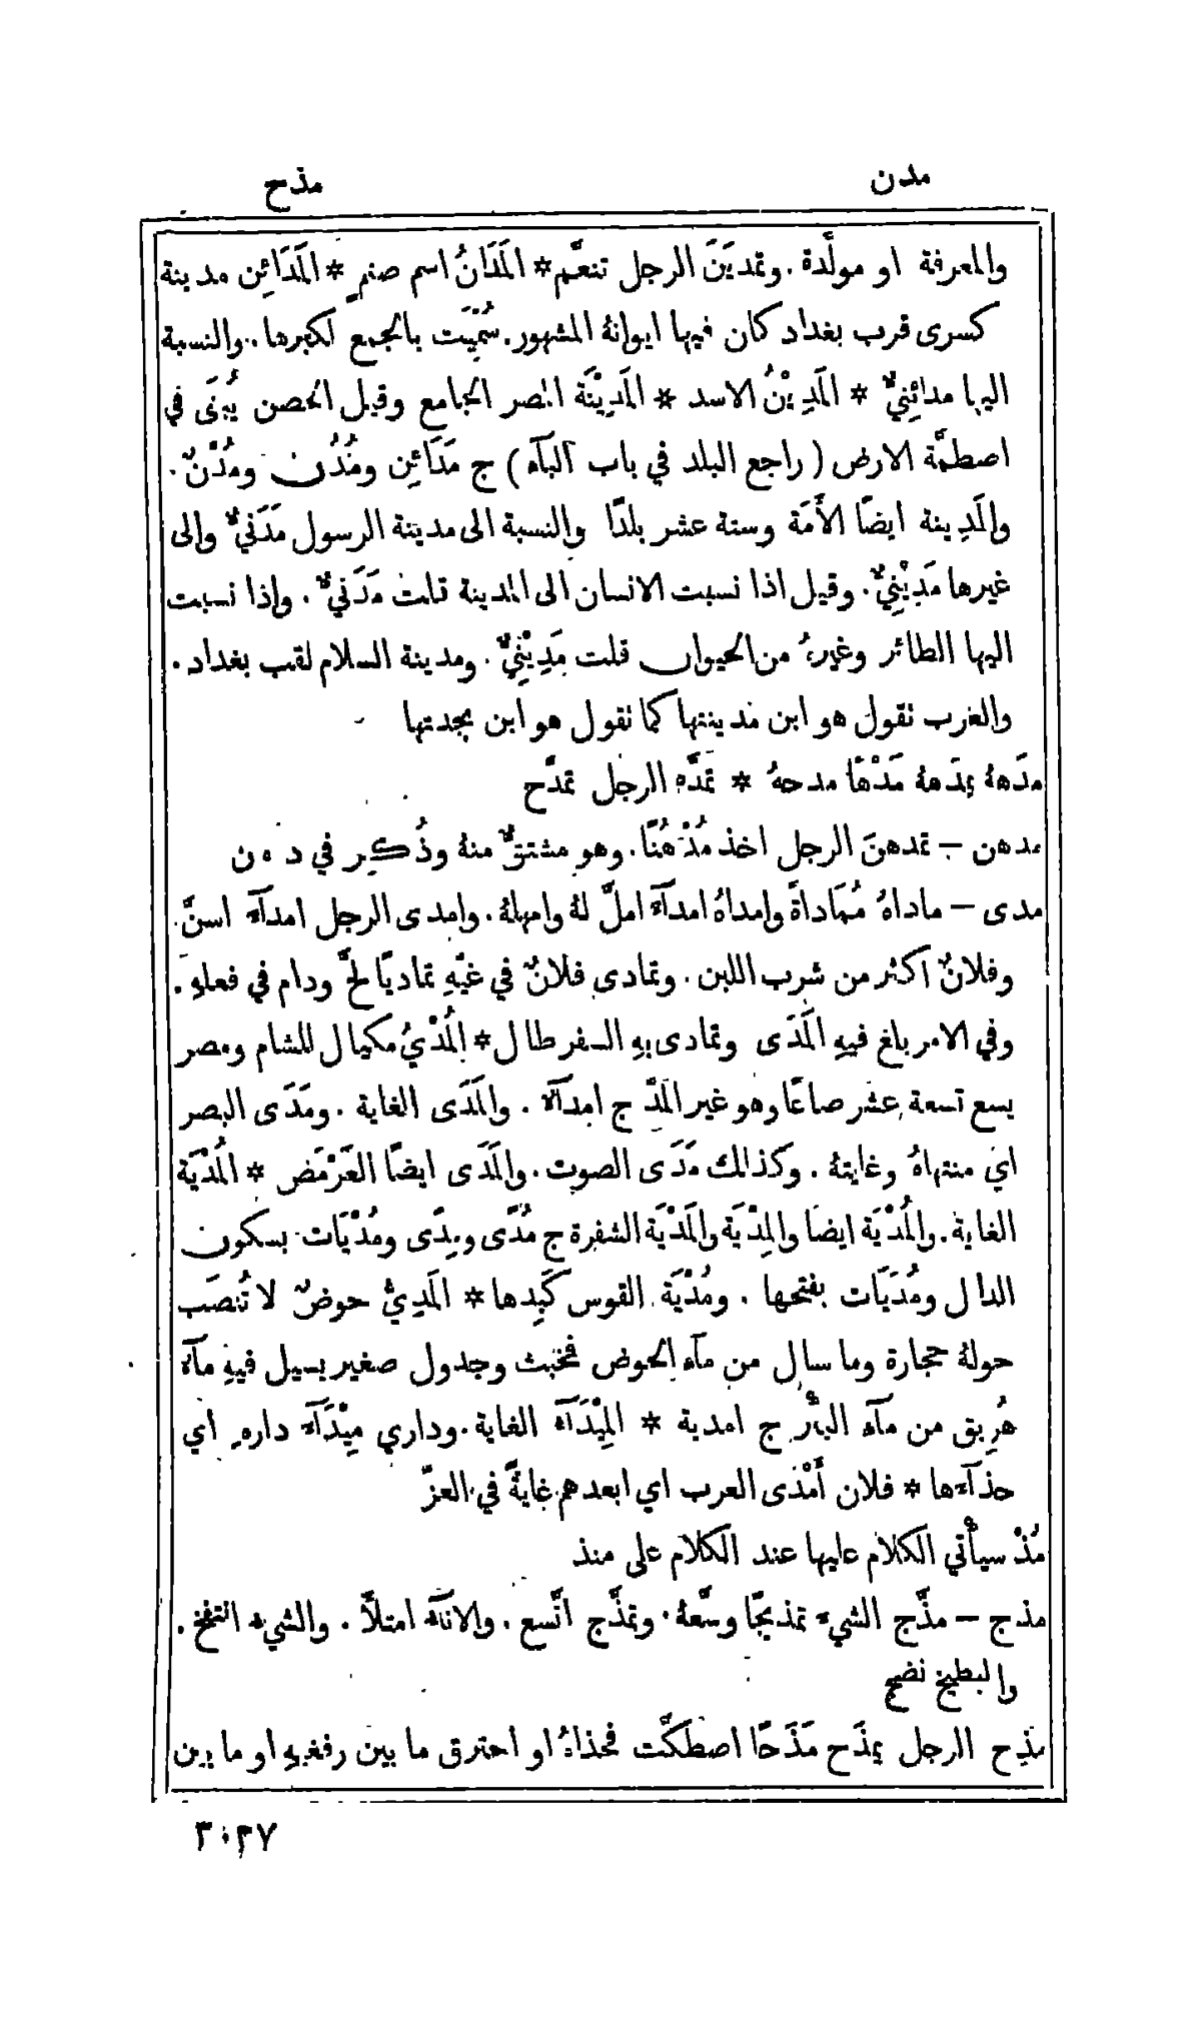 مدن
مذح
والمعرفة او مولَّدة. وتمديَنَ الرجل تنعَّم * المَدَانُ اسم صنمٍ * المَدَائِن مدينة
كسرى قرب بغداد كان فيها ايوانهُ المشهور. سُمِّيَت بالجمع لكبرها. والنسبة
اليها مدائِنِيٌّ * المَدِيْنُ الاسد * المَدِيْنَة المصر الجامع وقيل الحصن يُبنَى في
اصطمَّة الارض (راجع البلد في باب البآء) ج مَدَائِن ومُدُن ومُدْنٌ.
والمَدِينة ايضًا الأَمَة وستة عشر بلدًا والنسبة الى مدينة الرسول مَدَنيٌّ والى
غيرها مَدِيْنِيٌّ. وقيل اذا نسبت الانسان الى المدينة قلت مَدَنيٌّ. واذا نسبت
اليها الطائر وغيرهُ من الحيوان قلت مَدِيْنِيٌّ. ومدينة السلام لقب بغداد.
والعرب تقول هو ابن مدينتها كما تقول هو ابن بجدتها
مدَههُ يمدَههُ مَدْهًا مدحهُ * تمدَّه الرجل تمدَّح
مدهن – تمدهنَ الرجل اخذ مُدْهُنًا. وهو مشتقٌّ منهُ وذُكِر في د ه ن
مدى – ماداهُ مُمَاداةً وامداهُ امدآءً املَّ لهُ وامهلهُ. وامدى الرجل امدآءً اسنَّ.
وفلانٌ اكثر من شرب اللبن. وتمادى فلانٌ في غيّهِ تماديًا لجَّ ودام في فعلهِ.
وفي الامر بلغ فيهِ المَدَى وتمادى بهِ السفر طال * المُدْيُ مكيال للشام ومصر
يسع تسعة عشر صاعًا وهو غير المدّ ج امدآء. والمَدَى الغاية. ومَدَى البصر
اي منتهاهُ وغايتهُ. وكذلك مَدَى الصوت. والمَدَى ايضًا العَرْمَض * المُدْيَة
الغاية. والمُدْيَة ايضًا والمِدْيَة والمَدْيَة الشفرة ج مُدًى ومِدًى ومُدْيَات بسكون
الدال ومُدَيَات بفتحها. ومُدْيَة القوس كَبِدها * المَدِيُّ حوضٌ لا تُنصَب
حولهُ حجارة وما سال من مآء الحوض فخبث وجدول صغير يسيل فيهِ مآء
هُرِيق من مآء البئْر ج امدية * المِيْدَآء الغاية. وداري مِيْدَآء دارهِ اي
حذآءها * فلان أَمْدَى العرب اي ابعدهم غايةً في العزّ
مُذْ سيأْتي الكلام عليها عند الكلام على منذ
مذج – مذَّج الشيء تمذيجًا وسَّعهُ. وتمذَّج اتَّسع. والانآء امتلأَ. والشيء انتفخ.
والبطيخ نضج
مذِح الرجل يمذَح مَذَحًا اصطكَّت فخذاهُ او احترق ما بين رفغيهِ او ما بين